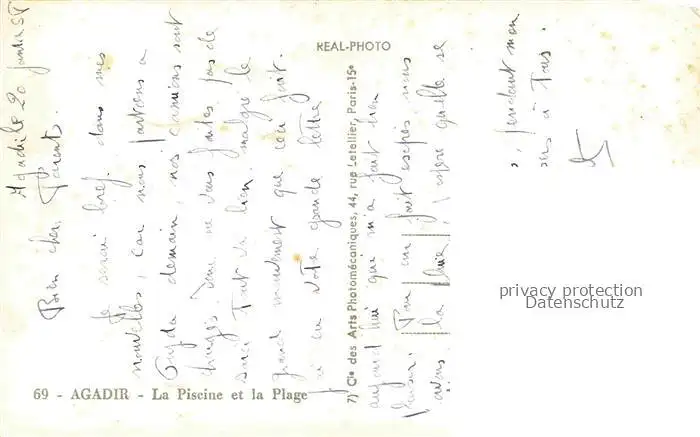 Agadir le 20 janvier 58
Bien chers Parents.
Je serai bref dans mes
nouvelles, car nous partons a
Oujda demain, nos camions sont
chargés. Donc ne vous faites pas de
souci Tout va bien. malgré le
grand mouvement que ceci fait.
J'ai eu votre grande lettre
aujourd'hui qui m'a fait bien
plaisir. Pour ceci fait
avons la pluie, j'espère quelle se
pendant mon
à Tous.
REAL-PHOTO
7) Cie des Arts Photomécaniques, 44, rue Letellier, Paris-15e
69 - AGADIR - La Piscine et la Plage
privacy protection
Datenschutz